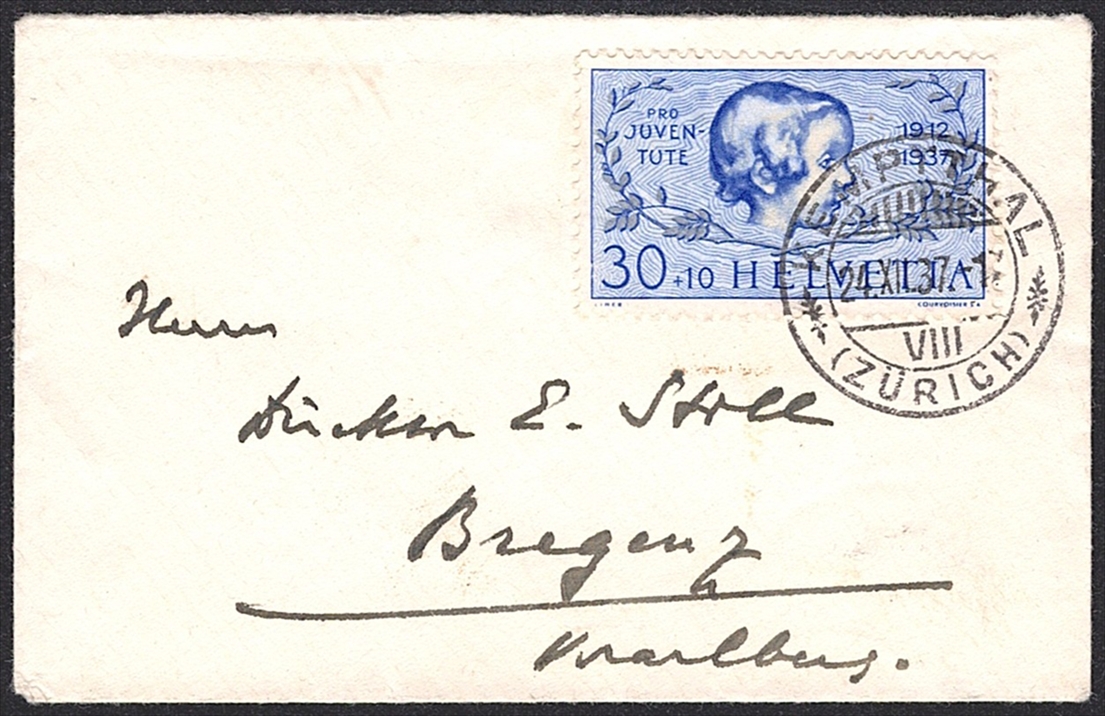 PRO
JUVEN-
TUTE
1912
1937
30+10 HELVETIA
COURVOISIER S.A.
KEMPTTHAL
24.XII.37.-1
VIII
(ZÜRICH)
Herrn
Direktor E. Stoll
Bregenz
Vorarlberg.